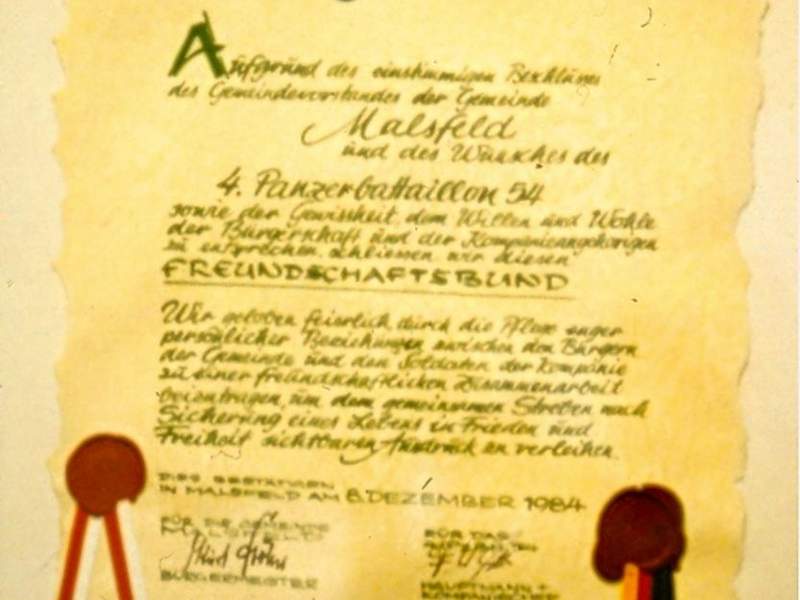 Aufgrund des einstimmigen Beschlusses
des Gemeindevorstandes der Gemeinde
Malsfeld
und des Wunsches der
4. Panzerbattaillon 54
sowie der Gewissheit, dem Willen und Wohle
der Bürgerschaft und der Kompanieangehörigen
zu entsprechen, schliessen wir diesen
FREUNDSCHAFTSBUND
Wir geloben feierlich durch die Pflege enger
persönlicher Beziehungen zwischen den Bürgern
der Gemeinde und den Soldaten der Kompanie
zu einer freundschaftlichen Zusammenarbeit
beizutragen, um dem gemeinsamen Streben nach
Sicherung eines Lebens in Frieden und
Freiheit sichtbaren Ausdruck zu verleihen.
DIES BESTÄTIGEN
IN MALSFELD AM 8. DEZEMBER 1984
FÜR DIE GEMEINDE
MALSFELD
FÜR DAS
BÜRGERMEISTER
HAUPTMANN +
KOMPANIECHEF